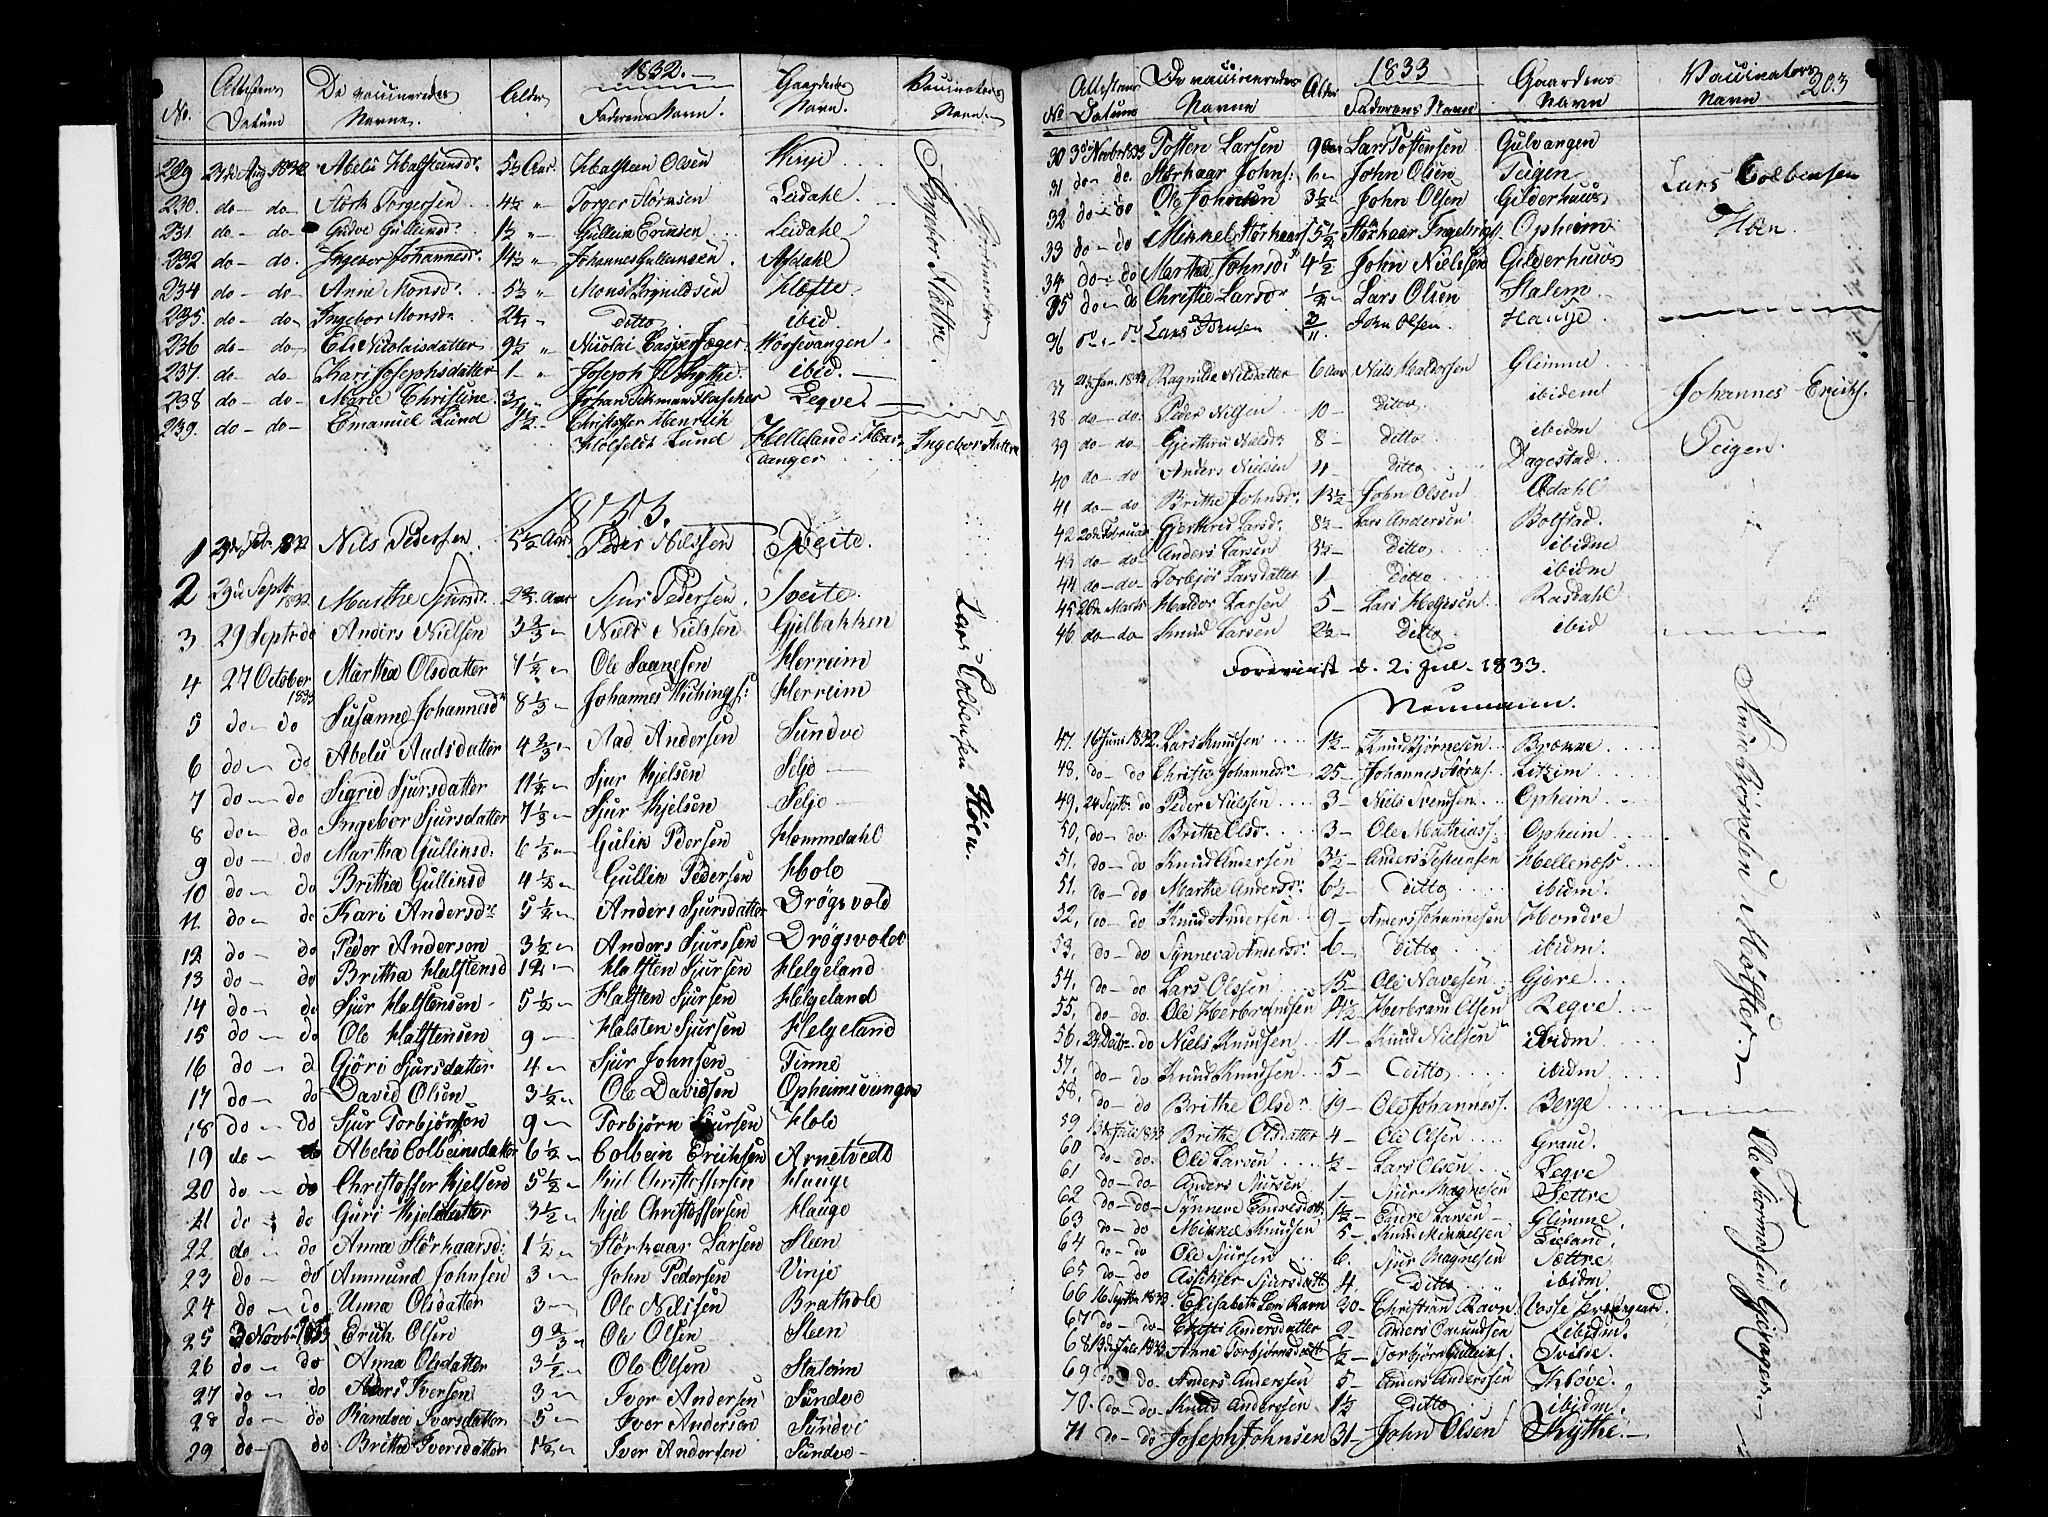 1832.
No. Attestens Datum De vaccineredes Navne. Alder Faderens Navn. Gaardens Navn. Vaccinateurs Navn.
229 23de Aug 1832 Abelu Halsteinsdr 5½ Aar. Halstein Olsen Vinje
230. do - do Störk Torgersen 4½ " Torger Störksen Leidahl
231. do - do Gudve Gulleinsd. 1½ " Gullein Ericsen Leidahl
232 do - do. Ingebor Johannesdr. 4½ " Johannes Gulleinsen. Afdahl
234 do - do- Anne Monsdr. 5½ " Mons Brynildsen Kløfte
235. do - do Ingebor Monsdr ditto ibid
236 do - do Eli Nicolaisdatter 9½ " Nicolai Casper Jæger Vossevangen
237. do - do- Kari Josephsdatter 1 - " Joseph J. Kythe. ibid.
238 do - do- Marie Christine Johan Fleischer Leqve
239. do - do- Emanuel Lund 8½ - Christoffer Henrich
Lund Helleland i Har-
danger Ingebor Nættre
Ingebor Nættre. Gjordmoder
1833.
1 23de Febr 1832 Nils Pedersen 5½ Aar. Peder Nilssen Tveite.
2 23de Septbr 1832 Marthe Sjursdr. Aar Sjur Pedersen Tveite.
3 29 Septr do Anders Nielsen 3⅔ Niels Nielssen Gilbakken
4 27 October 1833 Martha Olsdatter 1½ Ole Saavesen Herreim
5 do - do Susanne Johannesd 8⅓ Johannes Wikingss: Herreim
6 do - do Abelu Aadsdatter 4⅔ Aad Andersen Sundve
7 do - do Sigrid Sjursdatter 11½ Sjur Kjelsen Seljo
8 do - do Ingebor Sjursdatter 7⅓ Sjur Kjelsen Seljo
9 do - do Martha Gullinsd: 6⅓ Gulin Pedersen Hommdahl
10 do - do Britha Gullinsd 4½ Gullin Pedersen Holo
11 do - do Kari Andersdr 5½ Anders Sjursdatter Drögsvold
12 do - do Peder Anderson 3½ Anders Sjurssen Drögsvold
13 do - do Britha Halstensd Halsten Sjursen Helgeland
14 do - do Sjur Halstensen 5½ Halsten Sjursen Helgeland
15 do - do Ole Halstensen 9 - Halsten Sjursen Helgeland
16 do - d Gjöri Sjursdatter 4 - Sjur Johnsen Finne
17 do - do David Olsen 3½ Ole Davidsen Opheimsvangen
18 do - do Sjur Torbjørnsen 9 - Torbjørn Sjursen Holo
19 do - do Abelo Colbeinsdatter 6½ Colbein Erichsen Arnetvedt
20 do - do Christoffer Kjelsen 5½ Kjel Christoffersen Hauge
21 do - do Guri Kjelsdatter 3½ Kjel Christoffersen Haugo
22 do - do Anna Störkaarsd: 1½ Störkaar Larsen Steen
23 do - do Ammund Johnsen 3 - John Pedersen Vinje
24 do - do Unna Olsdatter 3 - Ole Nilsen Brathole
25 3 Novbr 1833 Erich Olsen 9⅔ Ole Olsen Steen
26 do - do Anna Olsdatter 3½ Ole Olsen Staleim
27 do - do Aders Iversen 3 - Iver Andersen Sundve
28 do - do Randve Iversdatter 5 - Iver Andersen Sundve
29 do - do Britha Iversdatter 1½ Iver Andersen Sundve
Lars Colbensen Høen.
203
1833
No Attestens Datum De vaccineredes Navne Alder Faderens Navn Gaardens Navn Vaccinators Navn
30 3de Novbr 1833 Tosten Larsen 9 Aar Lars Tostensen Gulvangen
31 do - do. Störkaar Johns: 6 John Olsen Teigen
32 do - do Ole Johnsen 3½ John Olsen Gilderhuus
33 do - do Mikkel Störkaars 5½ Störkaar Ingebrigs. Opheim
34 do - do Martha Johnsd: 4½ John Nielssen Gilderhuus
35 do - do Christie Larsdr ½ Lars Olsen Stalem
36 do - do Lars Jonsen John Olsen. Hauge
Lars Colbensen Høen.
37 21de Jan. 1833 Ragnilde Nilsdatter 6 Aar Nils Haldorsen Glimme
38 do - do. Peder Nilsen 10 - ditto ibidem
39 do - do Gjerthru Nilsdr 8 - ditto ibidm
40 do - do Anders Nielsen 11 ditto Dagestad
41 do - do Brithe Johnsdr. 13½ John Olsen Afdahl
42 20de Februar Gjerthrud Larsdr. 8½ Lars Andersen Bolstad.
43 do - do- Anders Larsen 3½ ditto ibidm
44 do - do- Torbjør Larsdatter 1 ditto ibidm
45 26de Marts Haldor Larsen 5 - Lars Helgesen Rasdahl
46 do - do Knud Larsen 2½ ditto ibid
Johannes Erichs. Teigen.
Foreviist d. 2. Jul. 1833.
Neumann.
47. 16 Juni 1832. Lars Knudsen 1½ Knud Bjørnesen Brække
48, do - do Christi Johannesdr 25 - Johannes Störks. Litheim
49, 24 Septbr. do Peder Nielssen 3 - Niels Svendsen Opheim
50, do - do. Brithe Olsdr. 3 - Ole Mathiass. Opheim
51, do - do Knud Andersen 3½ Anders Tosteinsen Hellenæss
51. do - do Marthe Andersdr. 6½ ditto ibidm.
52, do - do Knud Andersen 9 - Anders Johannesen Hondve
53, do - do Synneva Andersdr. 6 - ditto ibidm.
54, do - do Lars Olssen 15 - Ole Navesen Gjere
55, do - do. Ole Herbrandsen 4½ Herbrand Olsen Regve
56, 29 Decbr. do Niels Knudsen 11 - Knud Nielsen ibidm
57, do - do Knud Knudsen 5 - ditto ibidm
58, do - do Brithe Olsdr 19 - Ole Johanness. Berge
Knud Møthler.
59 13de Juli 1833 Brithe Olsdatter 4 - Ole Olsen Graue.
60 do - do. Ole Larsen ½ - Lars Olsen Leqve
61 do - do Anders Sjursen 1 - Sjur Magnesen Sættre
62 do - do - Synneve Endresdatt 1½ Endre Larsen Glimme
63 do - do Mikkel Knudsen 5 - Knud Mikkelsen Lieland.
64 do - do Ole Sjursen 6. Sjur Magnesen Sættre
65 do - do Assihjer Sjursdatt. 4 ditto ibidm,
66 16 Septbr 1833 Elisabeth Ravn 30 - Christian Ravn Vosse Prestegaard.
67 do - do Andersdatter 2 - Anders Omundsen ibidm.
68 13de Juli 1833 Anne Torbjørnsdatt ½ - Torbjørn Gulleins. Tvilde.
69 do - do. Anders Anderssen 5 - Anders Anderssen Kløve.
70. do - do - Knud Anderssen 1½ ditto ibidm.
71 do - do Joseph Johnsen 31 - John Olsen Kythe.
Ole Giærager